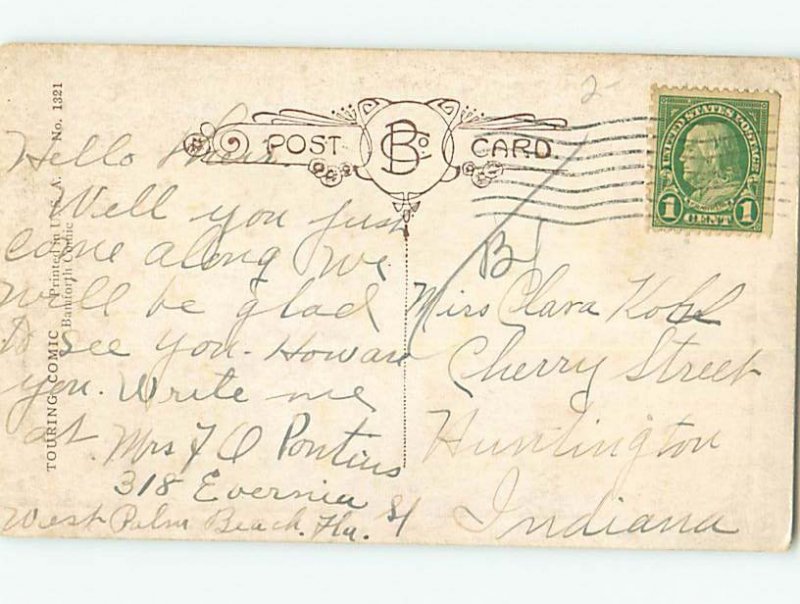 TOURING COMIC Printed in U.S.A. No. 1321
Bamforth Comic
POST CARD.
B Co.
UNITED STATES POSTAGE
1 CENT 1
2-
Hello
Well you just
come along We
will be glad
to see you. How are
you. Write me
at Mrs F O Pontius
318 Evernia St
West Palm Beach. Fla.
Miss Clara Kohl
Cherry Street
Huntington
Indiana